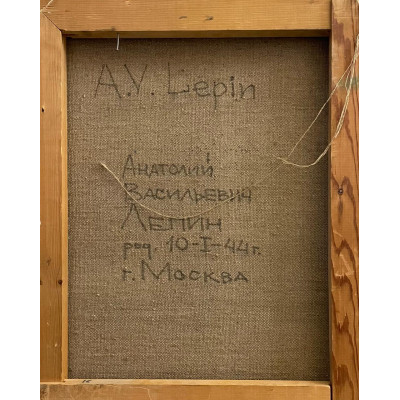 A.V. Lepin
Анатолий
Васильевич
Лепин
род. 10-I-44г.
г. Москва